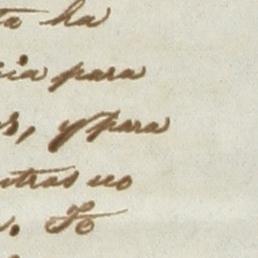 ta ha
cia para
os, y para
ntras no
To